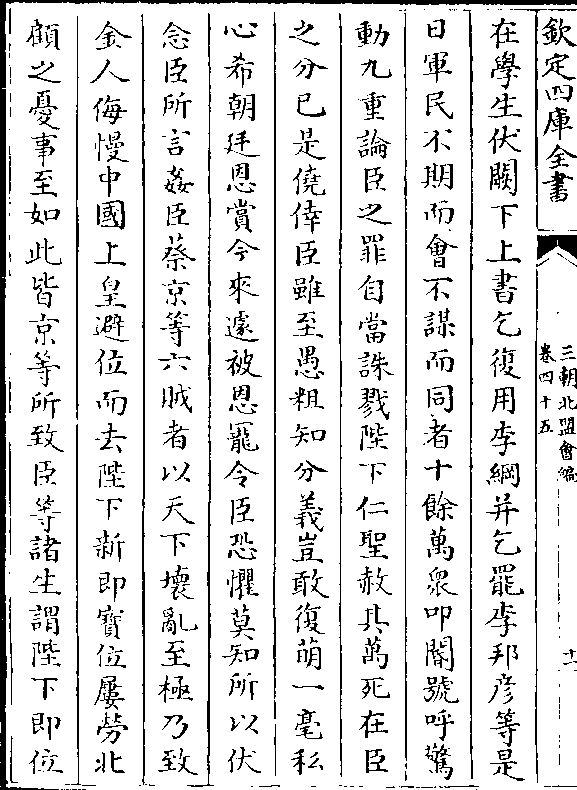 欽定四庫全書
三朝北盟會編
卷四十五
十一
在學生伏闕下上書乞復用李綱并乞罷李邦彦等是
日軍民不期而會不謀而同者十餘萬衆叩閽號呼驚
動九重論臣之罪自當誅戮陛下仁聖赦其萬死在臣
之分已是僥倖臣雖至愚粗知分義豈敢復萌一毫私
心希朝廷恩賞今來遽被恩寵令臣恐懼莫知所以伏
念臣所言姦臣蔡京等六賊者以天下壞亂至極乃致
金人侮慢中國上皇避位而去陛下新即寳位屢勞北
顧之憂事至如此皆京等所致臣等諸生謂陛下即位